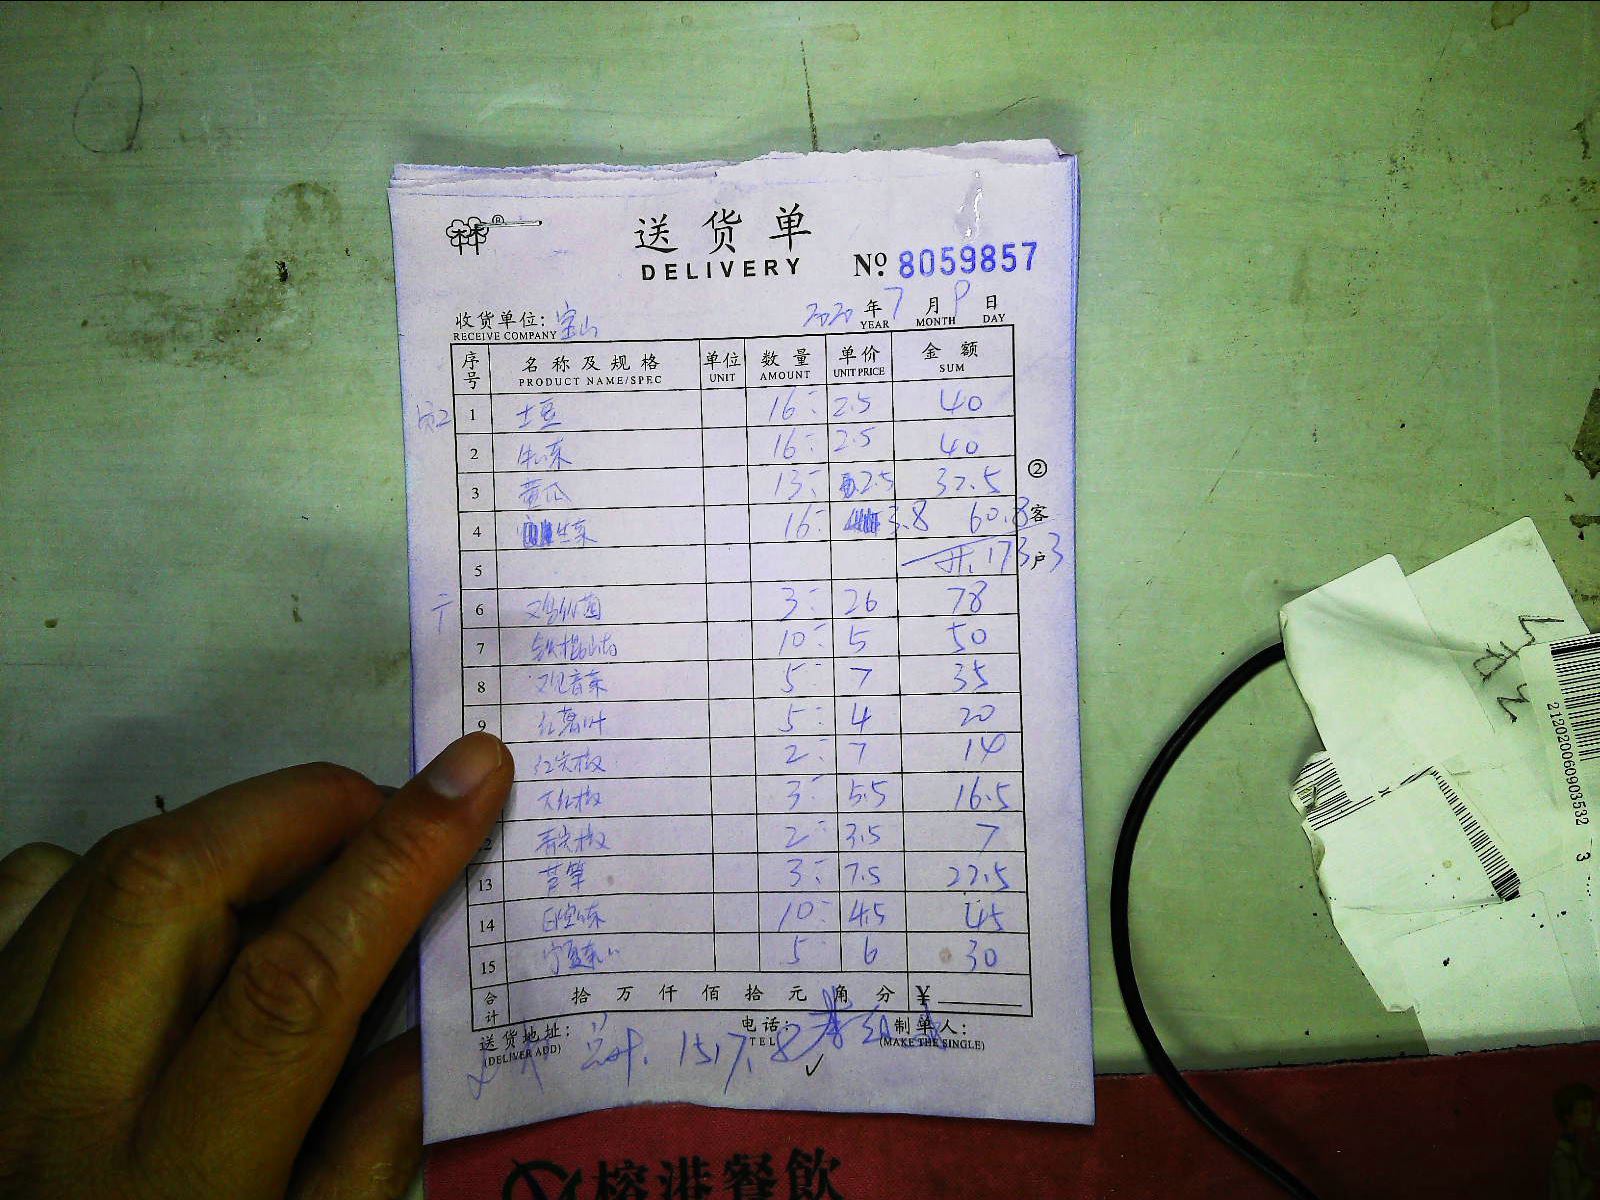 送货单
DELIVERY
№ 8059857
收货单位: 宝山 2020 年 7 月 9 日
RECEIVE COMPANY YEAR MONTH DAY
序号 名称及规格 单位 数量 单价 金额
PRODUCT NAME/SPEC UNIT AMOUNT UNIT PRICE SUM
1 土豆 16 2.5 40
2 16 2.5 40
3 黄瓜 13 2.5 32.5
4 生菜 16 3.8 60.8
5 计. 173.3
6 鸡枞菌 3 26 78
7 铁棍山药 10 5 50
8 观音菜 5 7 35
9 红薯叶 5 4 20
红尖椒 2 7 14
大红椒 3 5.5 16.5
2 青尖椒 2 3.5 7
13 芦笋 3 7.5 22.5
14 10 4.5 45
15 5 6 30
合计 拾 万 仟 佰 拾 元 角 分 ¥
送货地址: 电话: 制单人:
(DELIVER ADD) TEL (MAKE THE SINGLE)
总计. 1517.8
② 客户
212020060903532 3
榕港餐飲